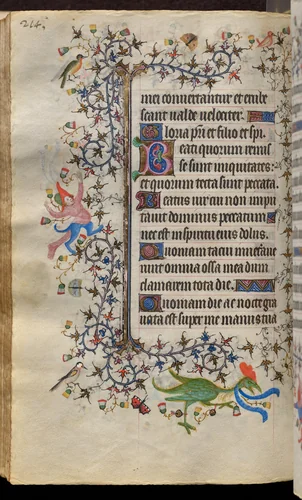 mei convertantur et erube
scant valde velociter.
Gloria pr̄i et filio et spi
Beati quorum remis
se sunt iniquitates:
et quorum tecta sunt peccata.
Beatus vir cui non impu
tavit dominus peccatum
nec est in spiritu eius dolus.
Quoniam tacui invetave
runt omnia ossa mea dum
clamarem tota die.
Quoniam die ac nocte gra
vata est super me manus tua